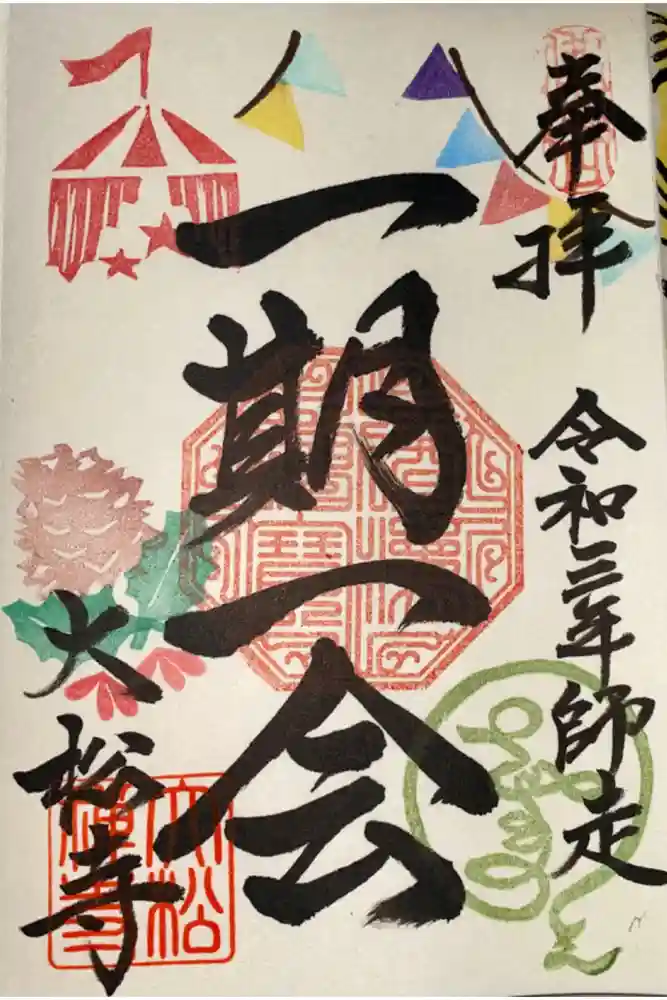 奉拝
令和三年師走
一期一会
大松寺